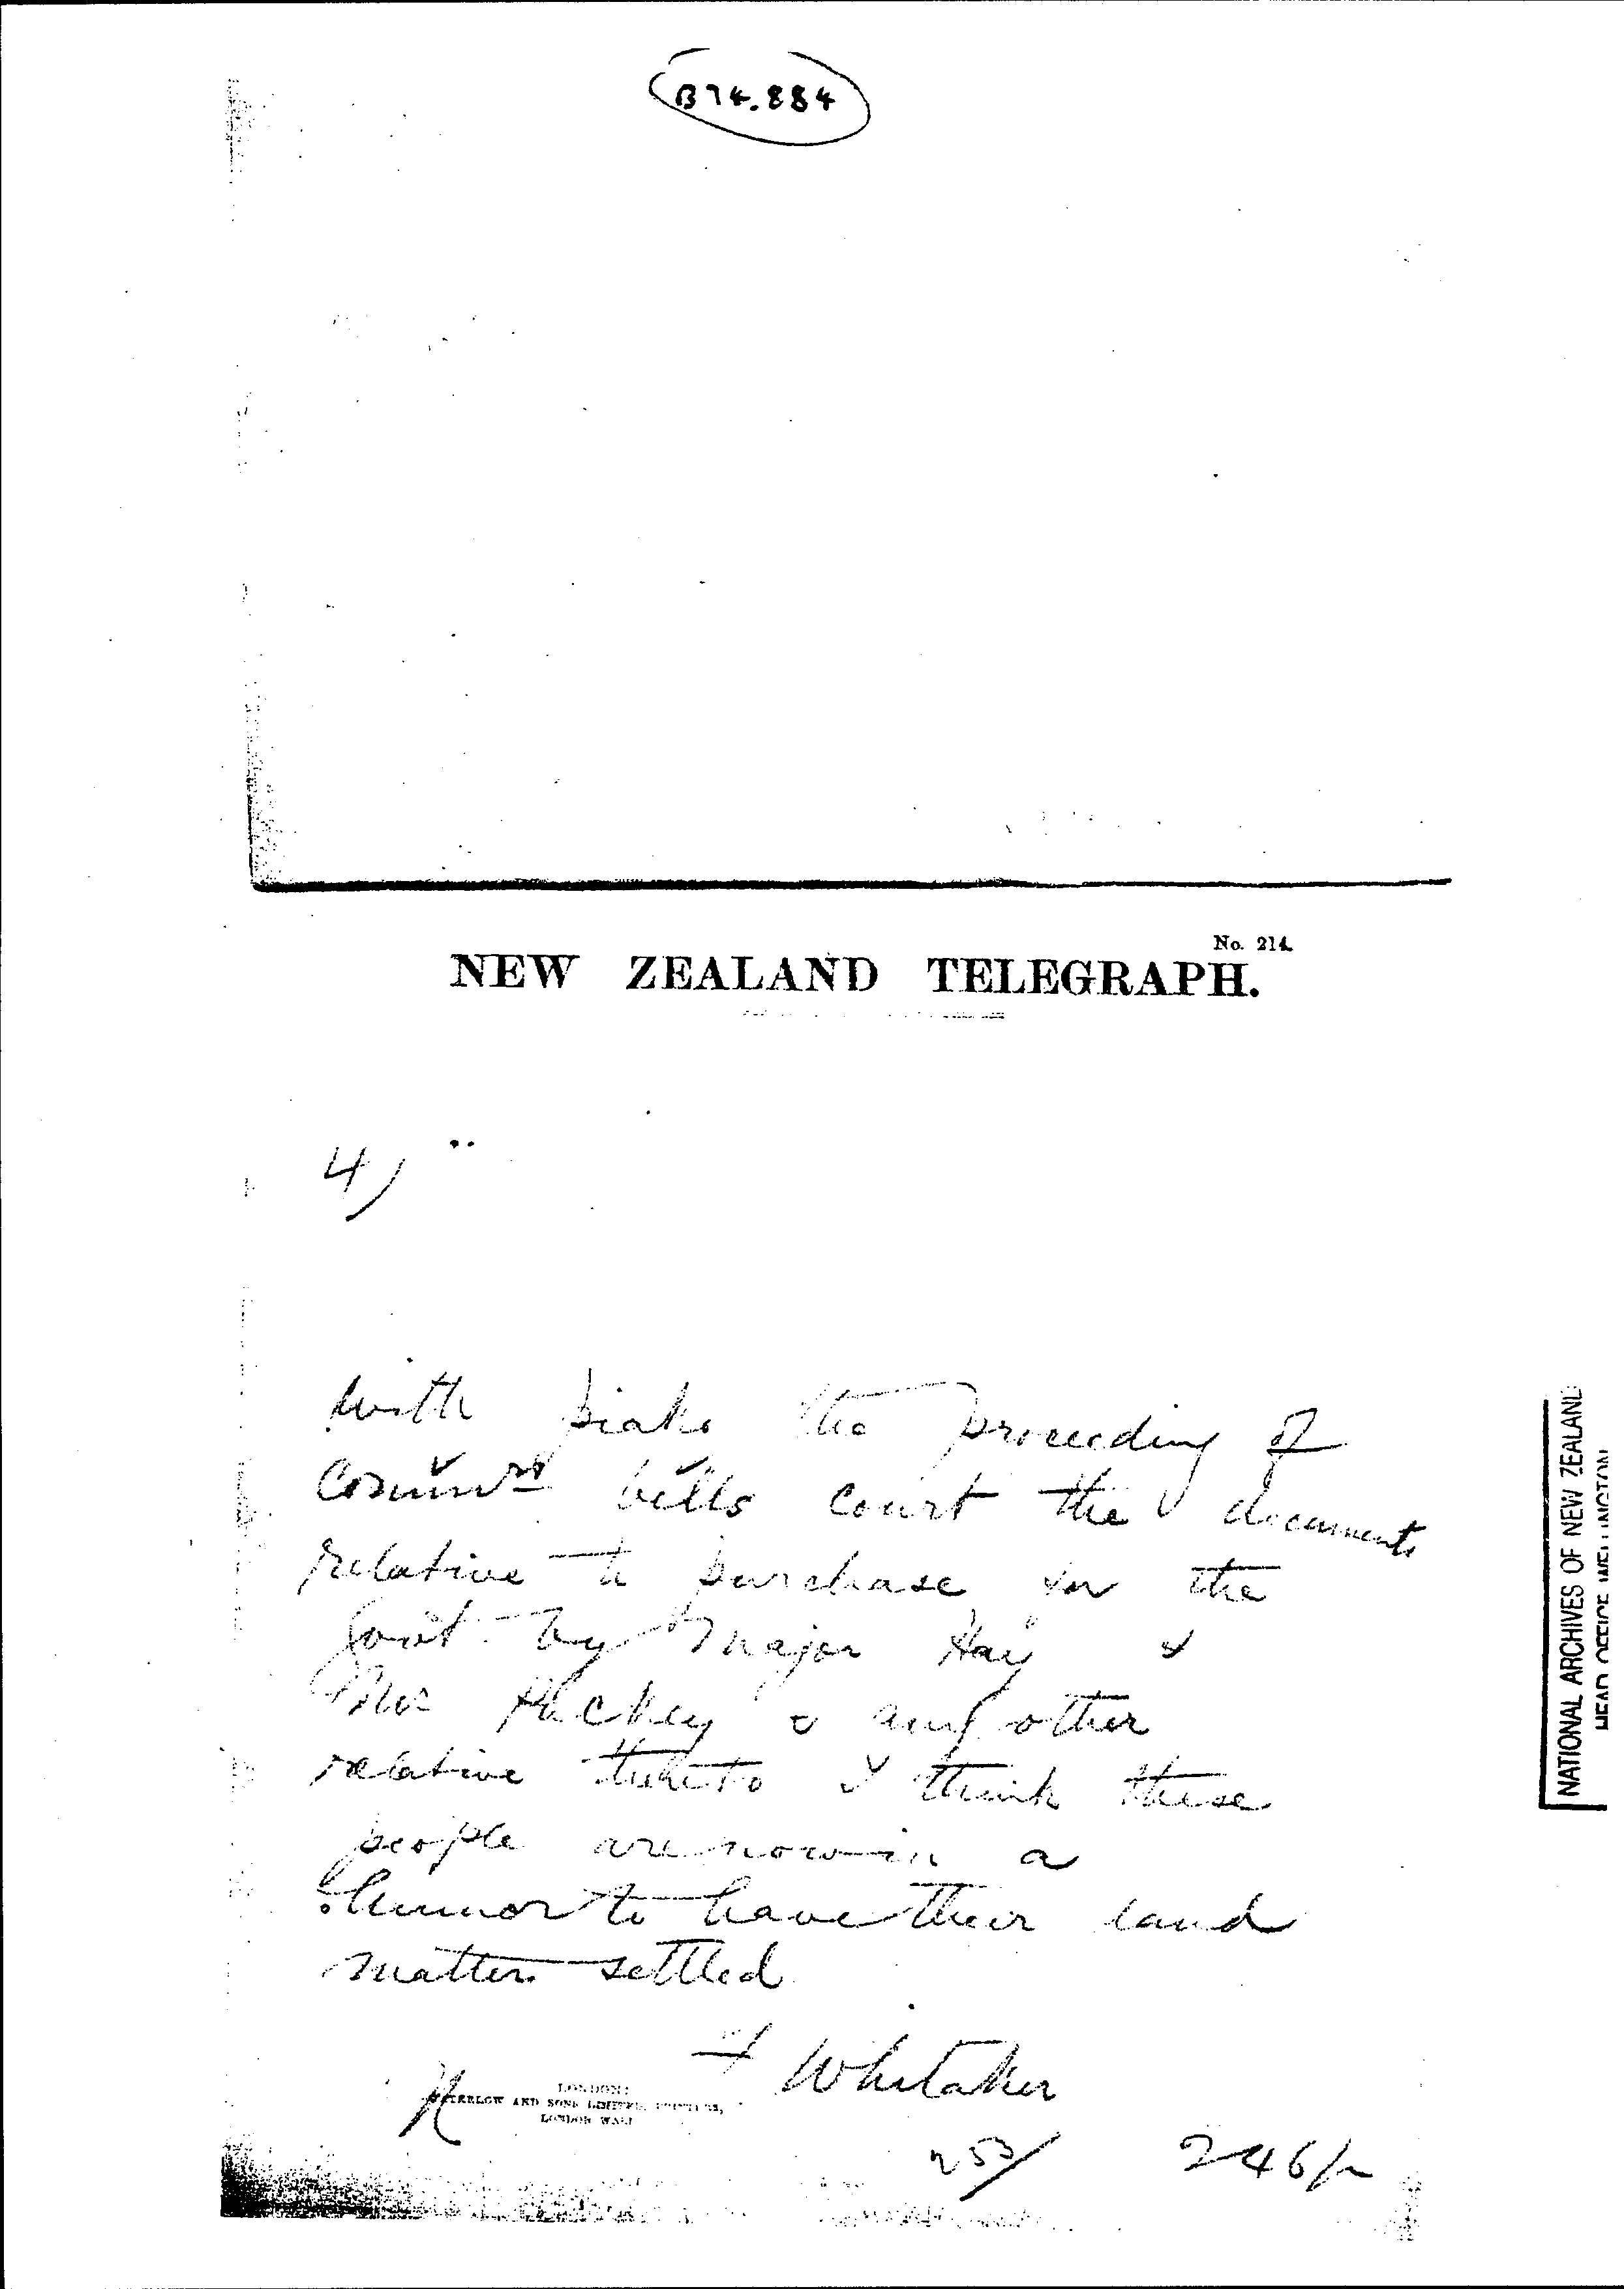 B74.884
No. 214.
NEW ZEALAND TELEGRAPH.
4)
with piako the proceeding of
Commrs bills court the documents
relative to purchase for the
Govt. by Major Hay &
Mr Mackey & any other
relative thereto I think these
people are now in a
humor to have their land
matters settled
F Whitaker
LONDON:
AND SONS LIMITED, PRINTERS,
LONDON WALL
253/ 246/-
NATIONAL ARCHIVES OF NEW ZEALAND
HEAD OFFICE WELLINGTON